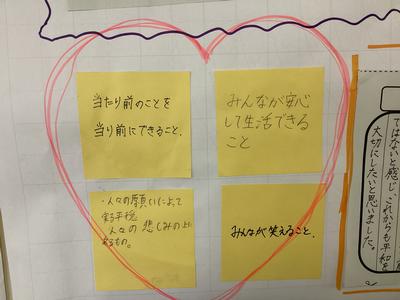 当たり前のことを
当り前にできること。
みんなが安心
して生活できる
こと
・人々の願いによって
平穏
人々の悲しみの上に
あるもの。
みんなが笑えること。
ではないと感じ、これからも平和を
大切にしたいと思いました。